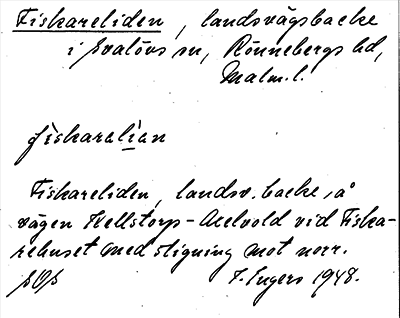 Fiskareliden, landsvägsbacke
i Svalövs sn, Rönnebergs hd,
Malm. l.
fiskaralian
Fiskareliden, landsv. backe, å
vägen Kellstorp - Axelvold vid Fiska-
rehuset med stigning mot norr.
I. Ingers 1948.